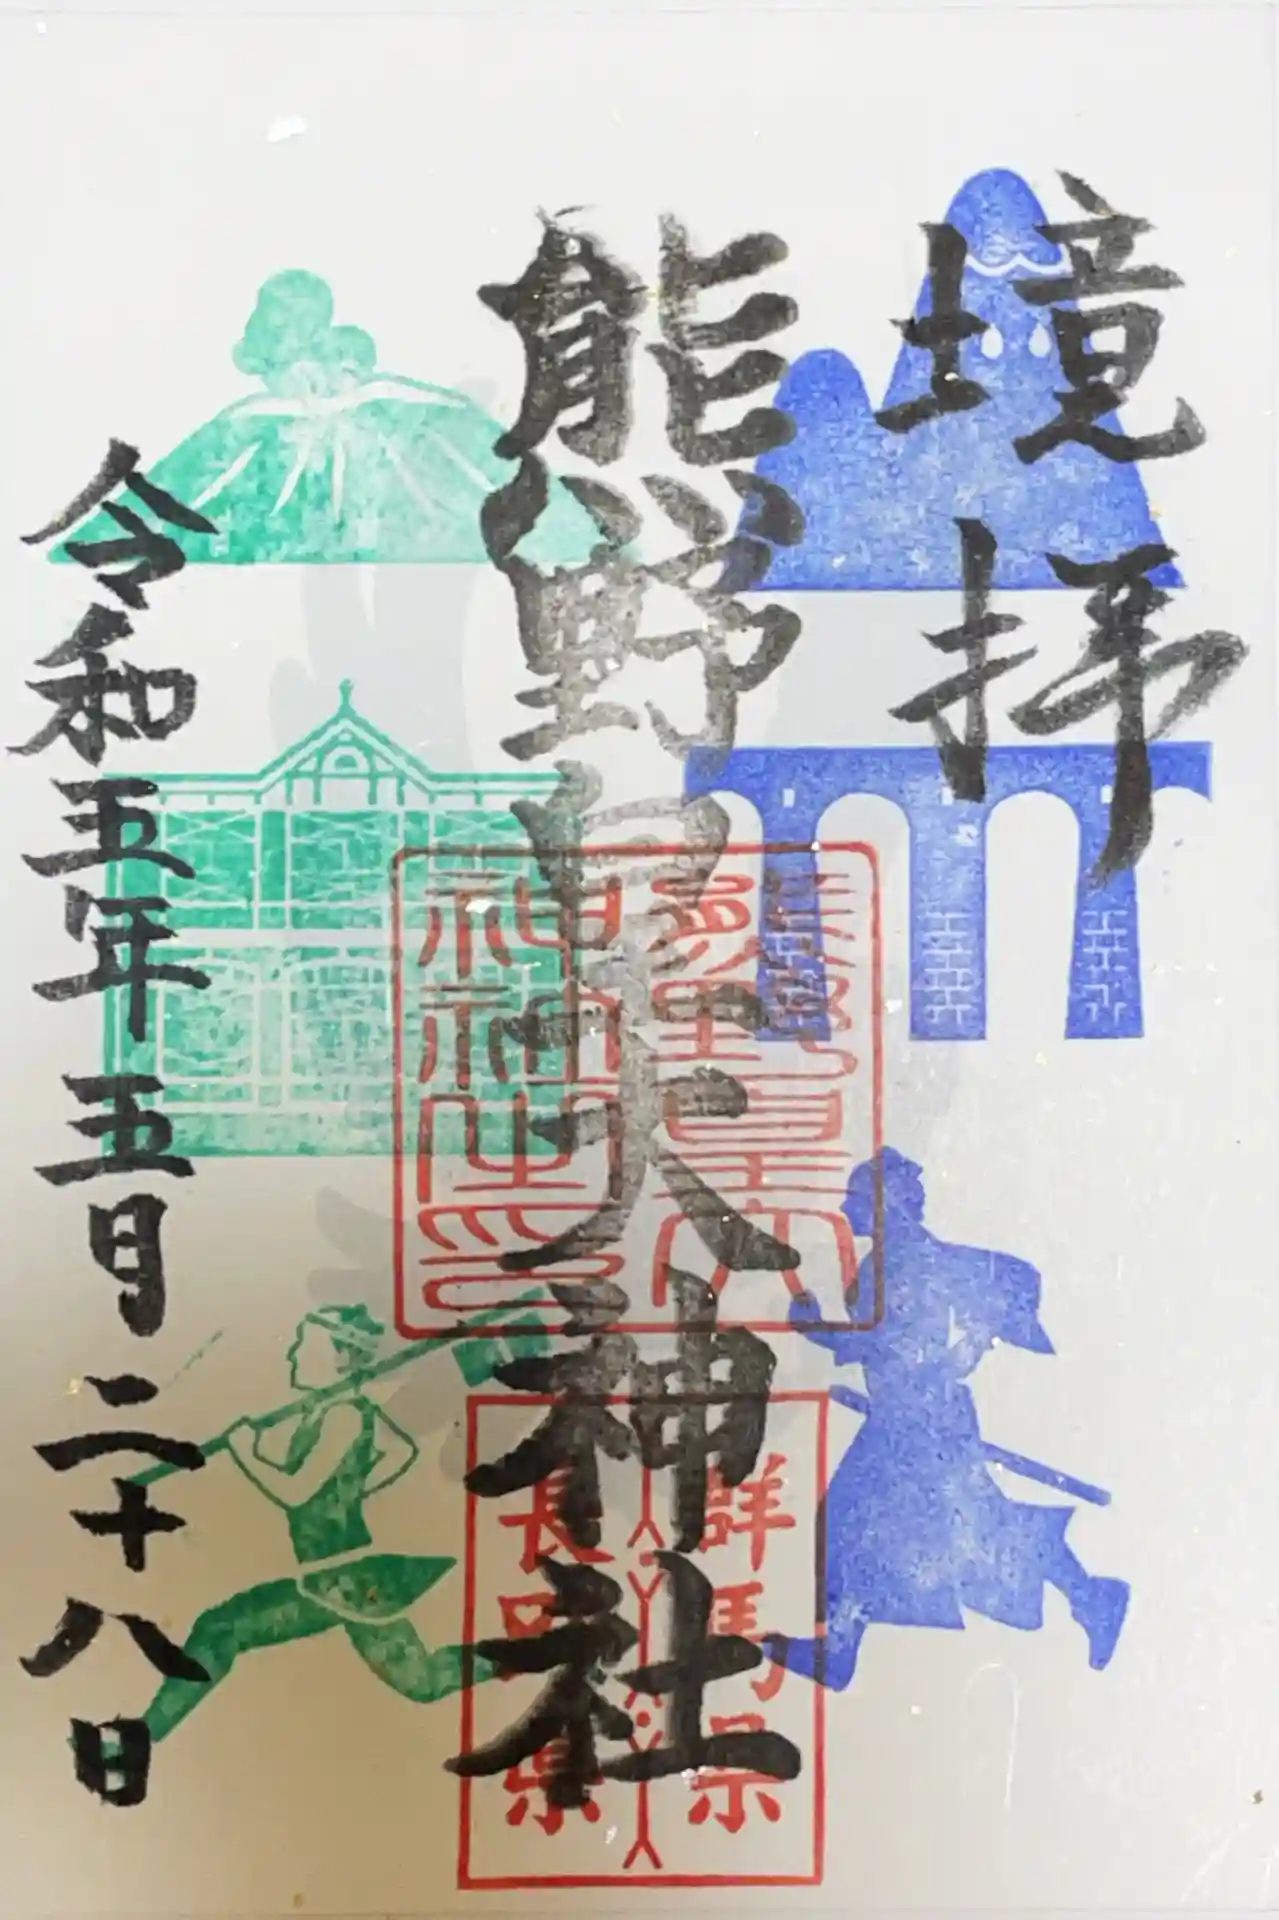 境拝
熊野皇大神社
令和五年五月二十八日
群馬県
長野県